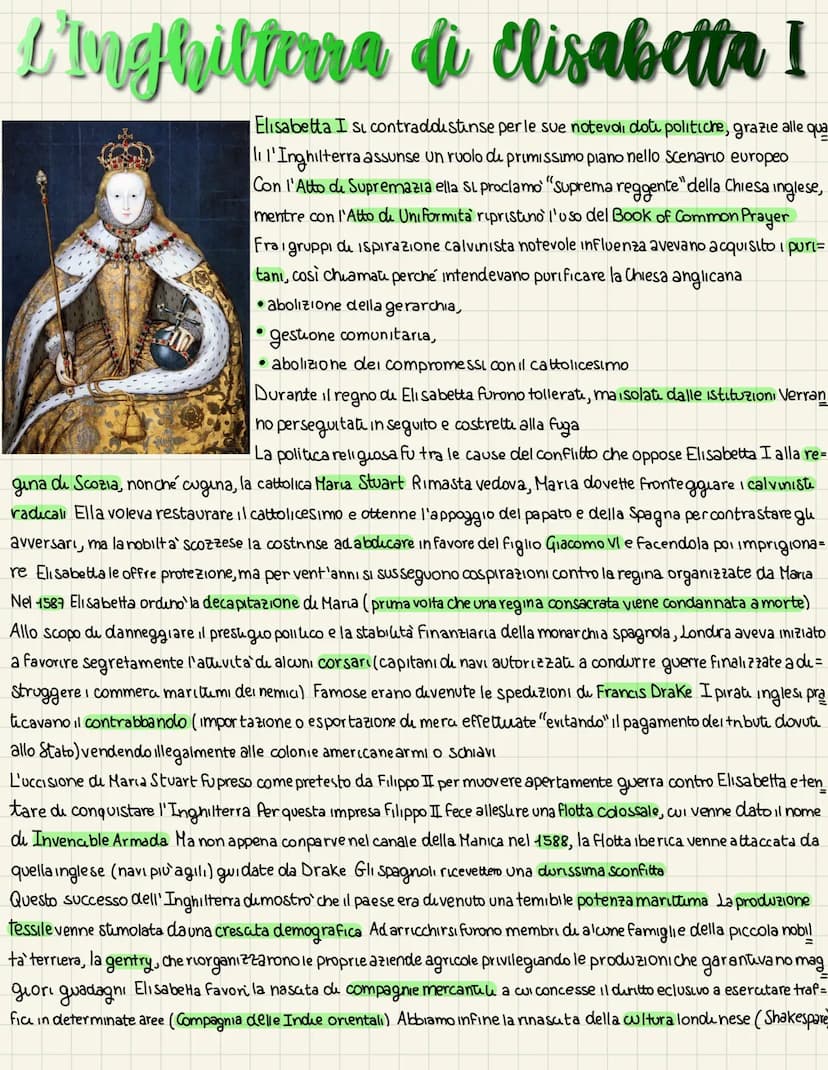 L'Inghilterra di Elisabetta I
Elisabetta I si contraddistinse per le sue notevoli doti politiche, grazie alle qua
li l'Inghilterra assunse un ruolo di primissimo piano nello scenario europeo
Con l'Atto di Supremazia ella si proclamò "suprema reggente" della Chiesa inglese,
mentre con l'Atto di Uniformità ripristinò l'uso del Book of Common Prayer
Fra i gruppi di ispirazione calvinista notevole influenza avevano acquisito i puri=
tani, così chiamati perché intendevano purificare la Chiesa anglicana
• abolizione della gerarchia,
• gestione comunitaria,
• abolizione dei compromessi con il cattolicesimo
Durante il regno di Elisabetta furono tollerati, ma isolati dalle istituzioni Verran
no perseguitati in seguito e costretti alla fuga
La politica religiosa fu tra le cause del conflitto che oppose Elisabetta I alla re=
gina di Scozia, nonché cugina, la cattolica Maria Stuart Rimasta vedova, Maria dovette fronteggiare i calvinisti
radicali Ella voleva restaurare il cattolicesimo e ottenne l'appoggio del papato e della Spagna per contrastare gli
avversari, ma la nobiltà scozzese la costrinse ad abdicare in favore del figlio Giacomo VI e facendola poi imprigiona=
re Elisabetta le offre protezione, ma per vent'anni si susseguono cospirazioni contro la regina organizzate da Maria
Nel 1587 Elisabetta ordinò la decapitazione di Maria (prima volta che una regina consacrata viene condannata a morte)
Allo scopo di danneggiare il prestigio politico e la stabilità finanziaria della monarchia spagnola, Londra aveva iniziato
a favorire segretamente l'attività di alcuni corsari (capitani di navi autorizzati a condurre guerre finalizzate a di=
struggere i commerci marittimi dei nemici) Famose erano divenute le spedizioni di Francis Drake I pirati inglesi pra
ticavano il contrabbando (importazione o esportazione di merci effettuate "evitando" il pagamento dei tributi dovuti
allo Stato) vendendo illegalmente alle colonie americane armi o schiavi
L'uccisione di Maria Stuart fu preso come pretesto da Filippo II per muovere apertamente guerra contro Elisabetta e ten
tare di conquistare l'Inghilterra Per questa impresa Filippo II fece allestire una flotta colossale, cui venne dato il nome
di Invencible Armada Ma non appena conparve nel canale della Manica nel 1588, la flotta iberica venne attaccata da
quella inglese (navi più agili) guidate da Drake Gli spagnoli ricevettero una durissima sconfitta
Questo successo dell'Inghilterra dimostrò che il paese era divenuto una temibile potenza marittima La produzione
tessile venne stimolata da una crescita demografica Ad arricchirsi furono membri di alcune famiglie della piccola nobil
tà terriera, la gentry, che riorganizzarono le proprie aziende agricole privilegiando le produzioni che garantivano mag
giori guadagni Elisabetta favorì la nascita di compagnie mercantili a cui concesse il diritto eclusivo a esercitare traf=
fici in determinate aree (Compagnia delle Indie orientali) Abbiamo infine la rinascita della cultura londinese (Shakespare)